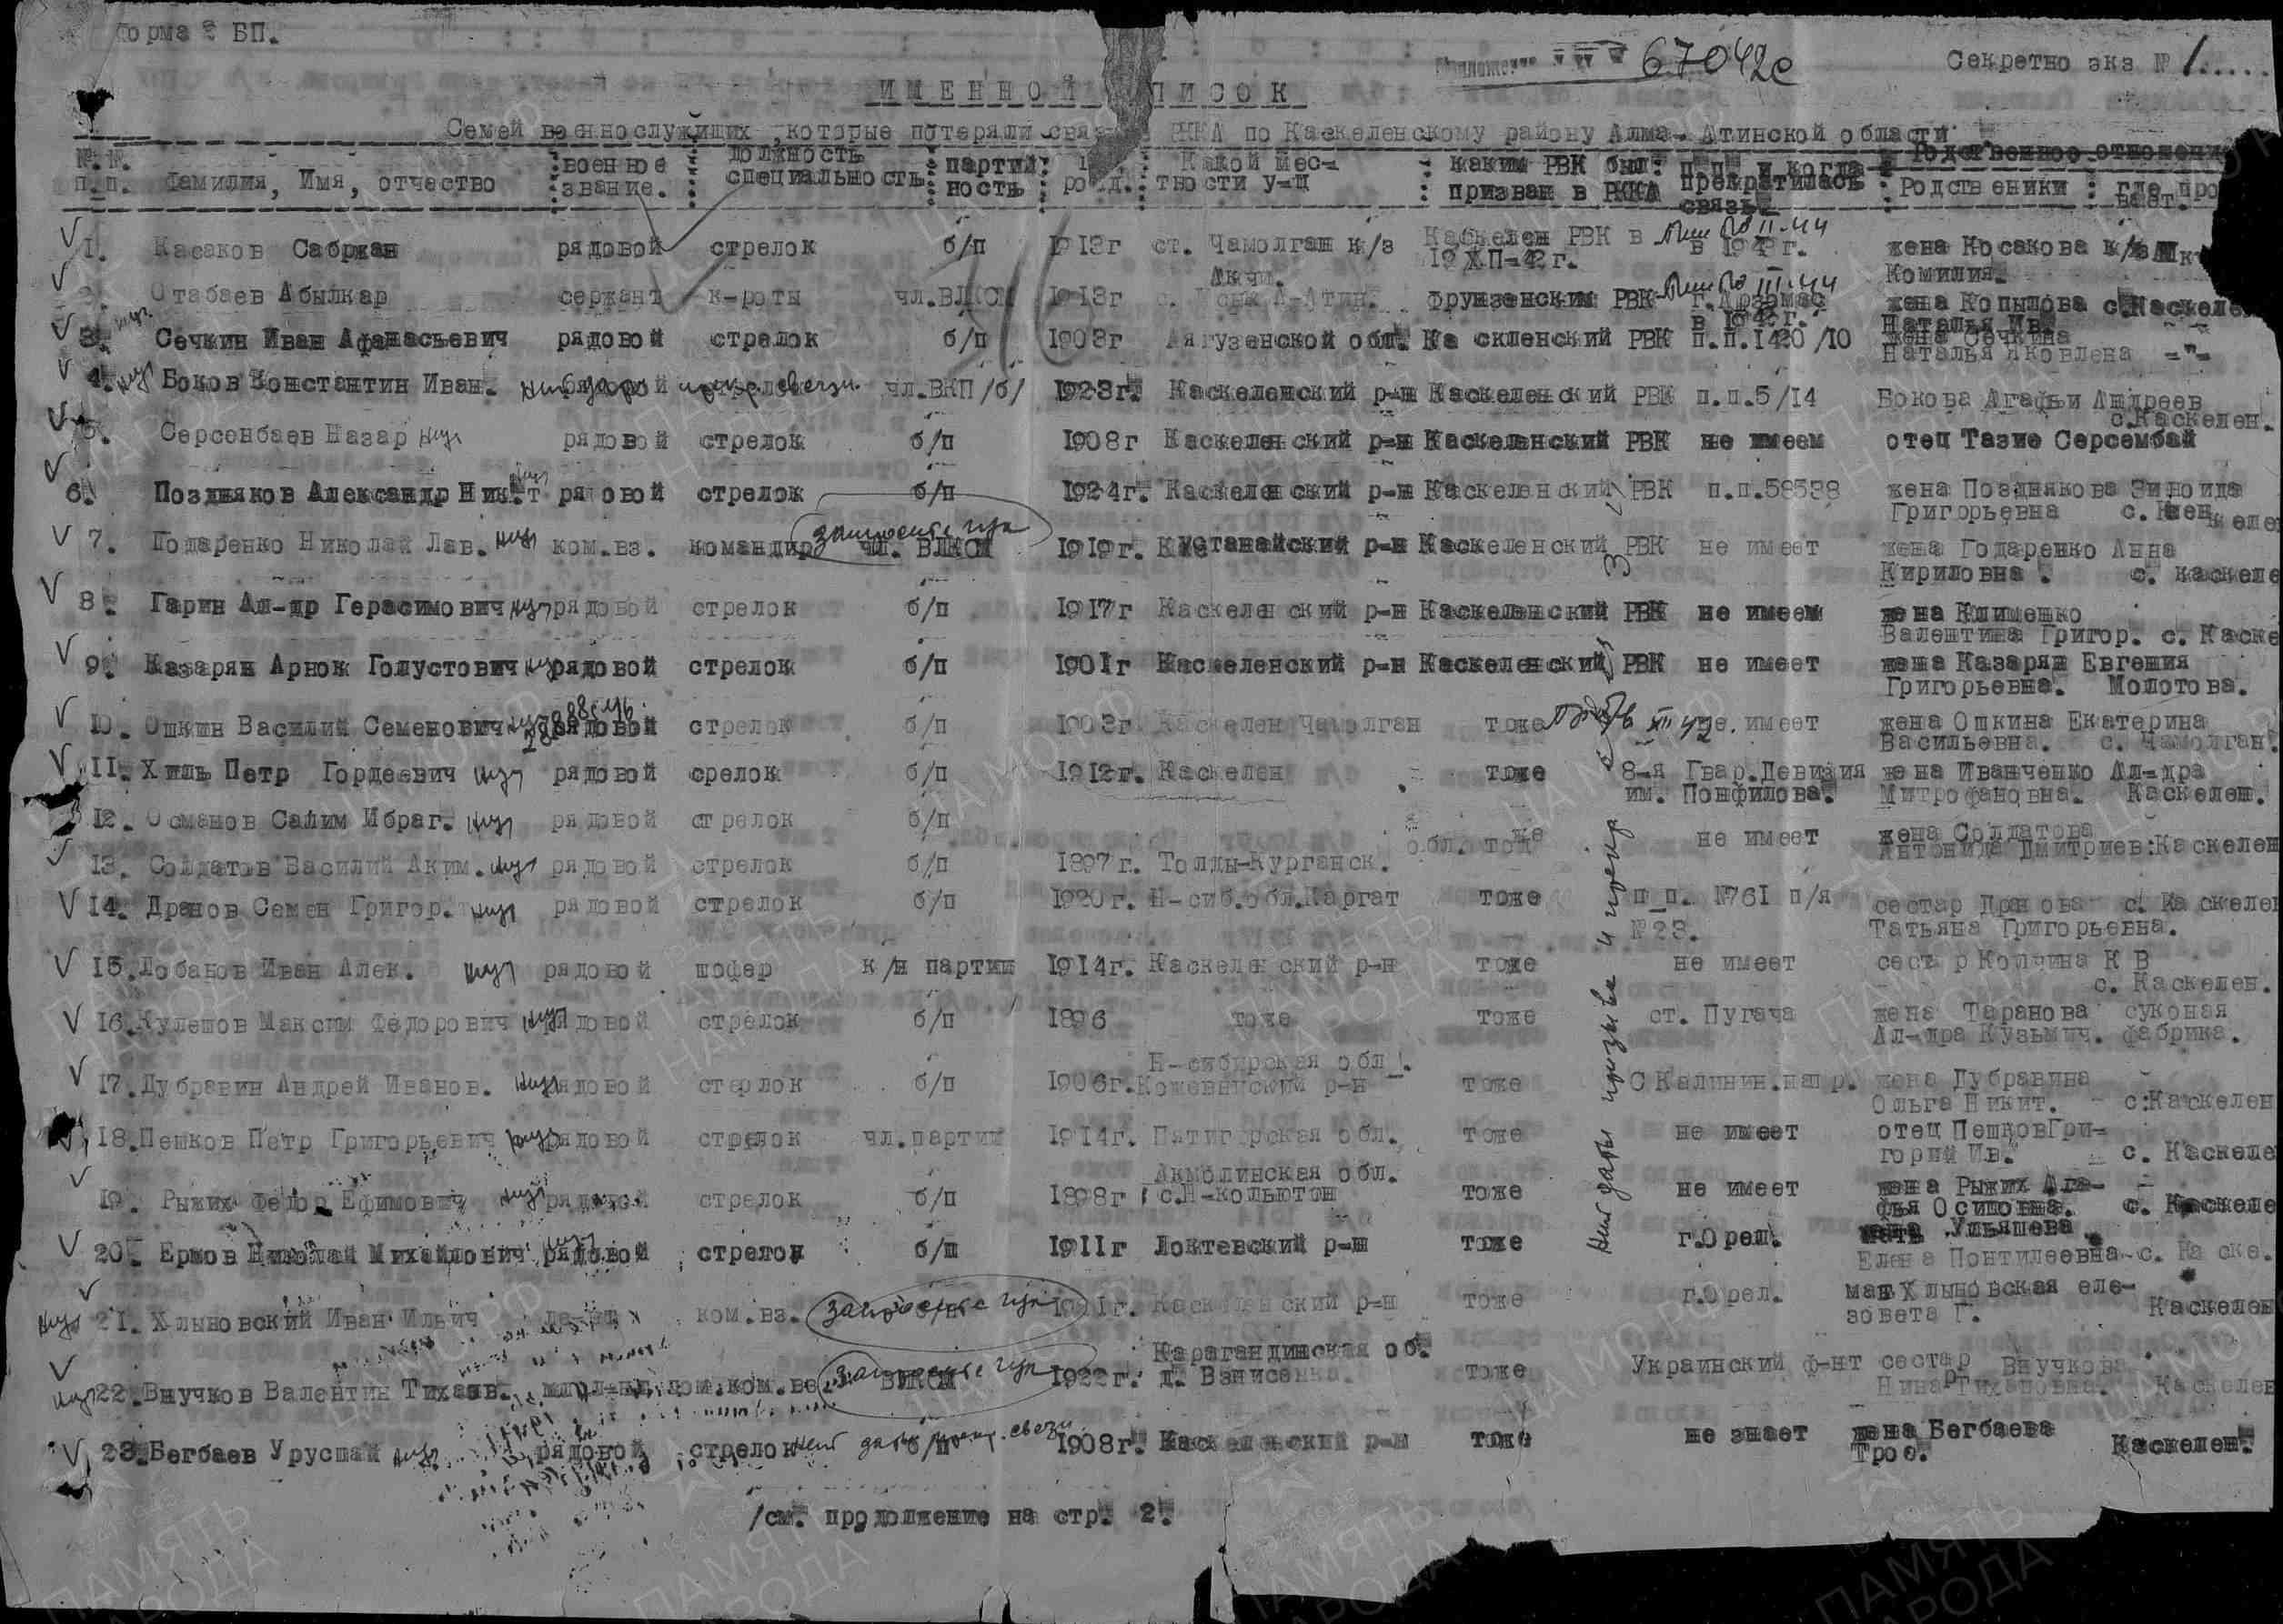 Форма 2 БП.
67042с
Секретно экз № 1.....
ИМЕННОЙ СПИСОК
Семей военнослужищих ,которые потеряли связ РККА по Каскеленскому району Алма- Атинской области
№.№. п.п. Фамилия, Имя, отчество военное звание. должность специальность партий: ность ро д. Какой мес- тности у-щ каким РВК был: призван в РККА п.п. и когда прекратилась связь Родственное отношени Родственики где про вает.
1. Касаков Сабржан рядовой стрелок б/п 1913г ст. Чамолган к/з Каскелен РВК в 19 ХП-42г. в 1943г. жена Косакова к/з Комилия.
Отабаев Абылкар сержант к-роты чл.ВЛКСМ 1913г Фрунзенским РВК г.Арзамас в 1942г. жена Копылова с.Каскеле Наталья Ив.
3. Сечкин Иван Афанасьевич рядовой стрелок б/п 1903г Аягузенской обл. Ка скленский РВК п.п.1420/10 жена Сечкина Наталья Яковлена -"-
4. Боков Константин Иван. рядовой чл.ВКП/б/ 1923г. Каскеленский р-н Каскеленский РВК п.п.5/14 Бокова Агафьи Андреев с.Каскелен.
5. Серсенбаев Назар рядовой стрелок б/п 1908г Каскеленский р-н Каскеленский РВК не имеем отец Тазие Серсембай
6. Поздняков Александр Ник.т рядовой стрелок б/п 1924г. Каскеленский р-н Каскеленский РВК п.п.58538 жена Позднякова Зиноида Григорьевна
7. Подаренко Николай Лав. ком.вз. командир чл. ВЛКСМ 1919г. Кустанайский р-н Каскеленский РВК не имеет жена Годаренко Анна Кириловна . с. каскеле
8. Гарин Ал-др Герасимович рядовой стрелок б/п 1917г Каскеленский р-н Каскеленский РВК не имеем жена Клименко Валентина Григор. с. Каске
9. Казарян Арнок Голустович рядовой стрелок б/п 1901г Каскеленский р-н Каскеленский РВК не имеет жена Казарян Евгения Григорьевна. Молотова.
10. Ошкин Василий Семенович рядовой стрелок б/п 1903г. Каскелен Чамолган тоже XII 42 не. имеет жена Ошкина Екатерина Васильевна. с. Чамолган.
11. Хиль Петр Гордеевич рядовой срелок б/п 1912г. Каскелен тоже 8-я Гвар.Девизия им. Понфилова. жена Иванченко Ал-дра Митрофановна. Каскелен.
12. Османов Салим Ибраг. рядовой стрелок б/п
13. Солдатов Василий Аким. рядовой стрелок б/п 1897г. Толды-Курганск. обл. тоже не имеет жена Солдатова Антонида Дмитриев:Каскелен
14. Дранов Семен Григор. рядовой стрелок б/п 1920г. Н-сиб.обл.Каргат тоже п_п. №761 п/я №23. сестар Дранова с. Каскелен Татьяна Григорьевна.
15. Лобанов Иван Алек. рядовой шофер к/н партии 1914г. Каскеленский р-н тоже не имеет сестар Колчина К В с. Каскелен.
16. Кулешов Максим Федорович рядовой стрелок б/п 1896 тоже тоже ст. Пугача жена Таранова суконая Ал-дра Кузьмич. фабрика.
17. Дубравин Андрей Иванов. рядовой стерлок б/п 1906г. Н-сибирская обл. Кожевнуский р-н тоже С Калинин.напр. жена Дубравина Ольга Никит. с:Каскелен
18. Пешков Петр Григорьевич рядовой стрелок чл.партии 1914г. Пятигорская обл. тоже не имеет отец ПешковГри- горий Ив. с. Каскеле
19. Рыжих Федор Ефимович рядовой стрелок б/п 1898г Акмолинская обл. с.Н-кольютон тоже не имеет жена Рыжих Ага- фья Осиповна. с. Каскеле
20. Ермов Николай Михайлович рядовой стрелок б/п 1911г Локтевский р-н тоже г.Орел. мать Ульяшева Елена Понтилеевна с. Каске.
21. Хлыновский Иван Ильич ком.вз. Каскеленский р-н тоже г.Орел. мат Хлыновская еле- зовета Г. Каскелен
22. Внучков Валентин Тиханов. ВЛКСМ 1922г. Карагандинская об. тоже Украинский ф-нт сестар Внучкова Нина Тихановна. Каскелен
23. Бегбаев Урусшай рядовой стрелок б/п 1908г. Каскеленский р-н тоже не знает жена Бегбаева Трое. Каскелен.
Нет даты призыва и
/см. продолжение на стр. 2.
ПАМЯТЬ НАРОДА
ЦАМО РФ